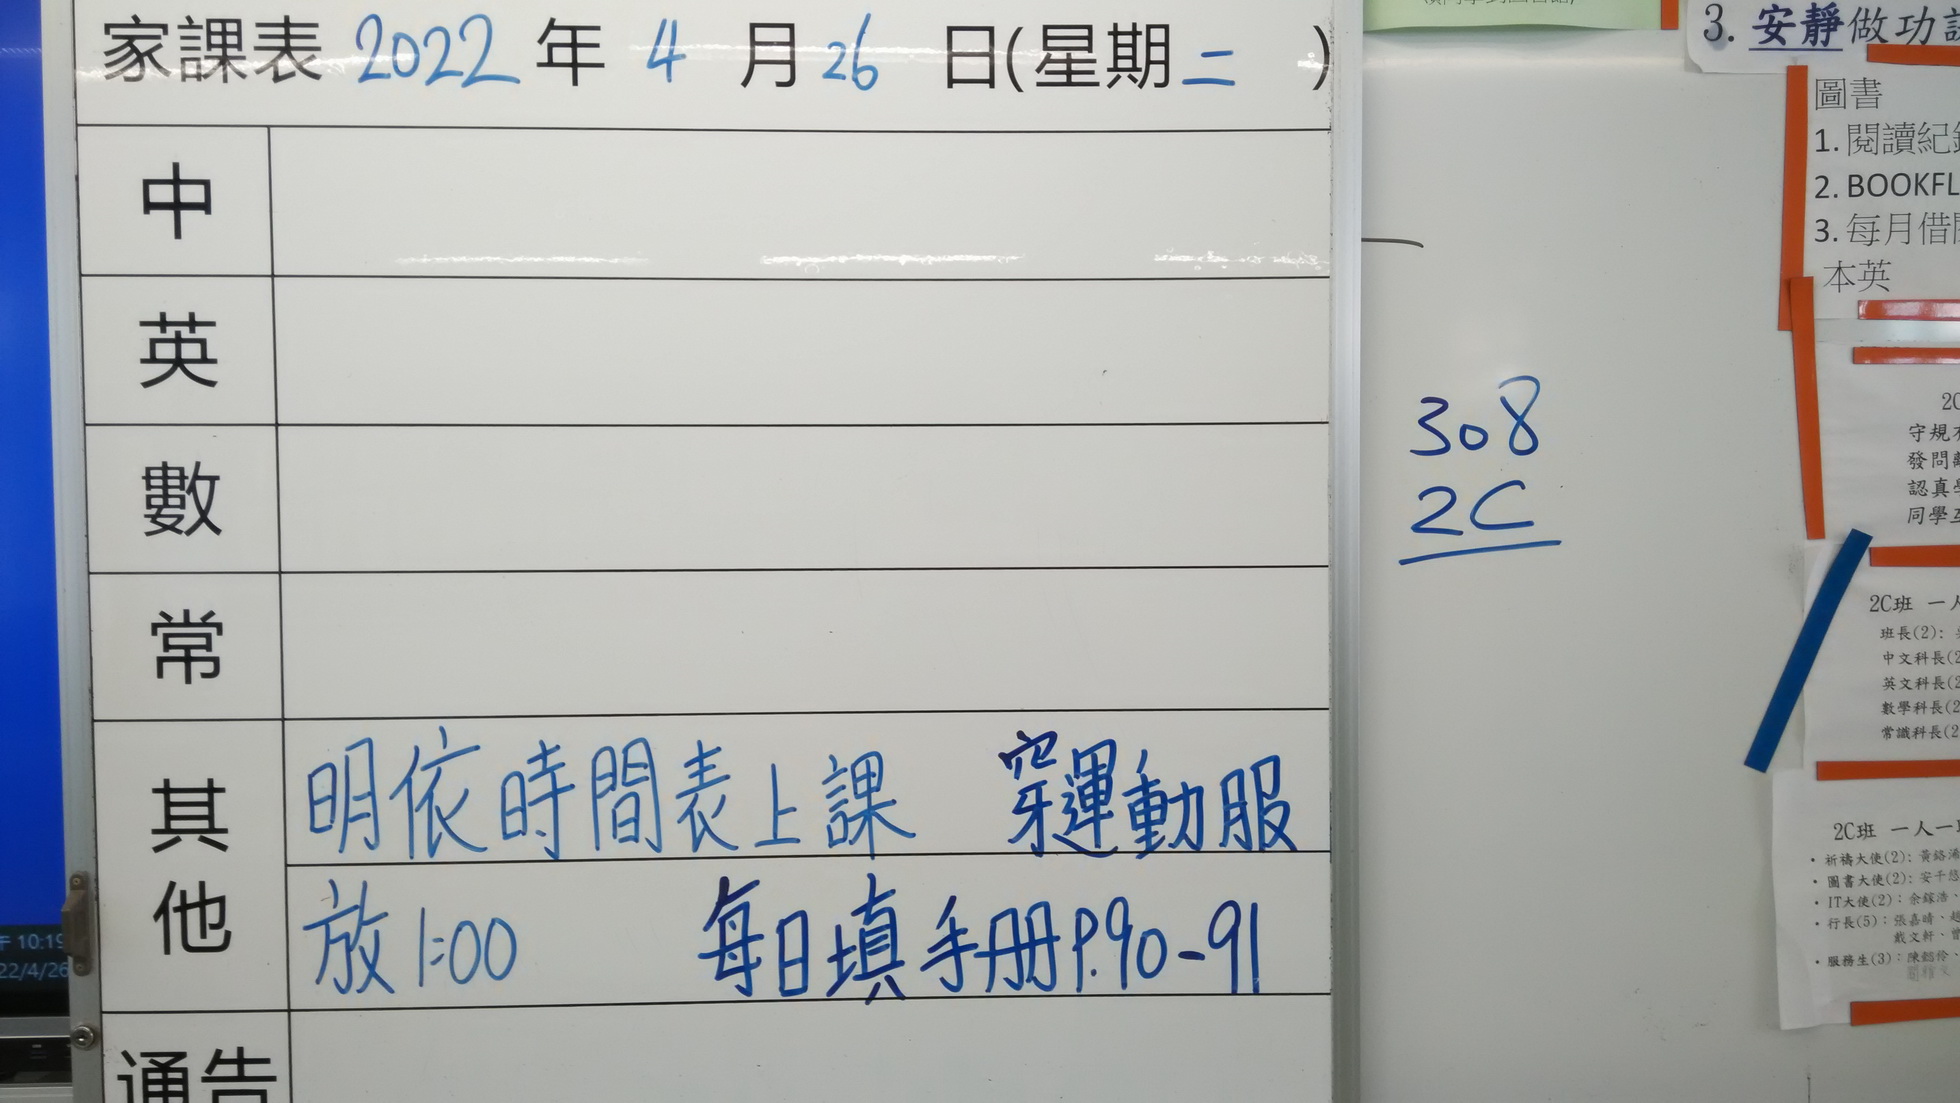 家課表 2022 年 4 月 26 日(星期二 )
中
英
數
常
其他
明依時間表上課 穿運動服
放 1:00 每日填手冊P.90-91
通告
308
2C
3. 安靜做功課
圖書
1. 閱讀紀
2. BOOKFL
3. 每月借
本英
2C
守規
發問
認真
同學
2C班 一人
班長(2):
中文科長(2
英文科長(2
數學科長(2
常識科長(2
2C班 一人一
• 祈禱大使(2):
• 圖書大使(2): 安千悠
• IT大使(2):
• 行長(5): 張嘉晴、趙
戴文軒、曾
• 服務生(3):
午 10:19
22/4/26